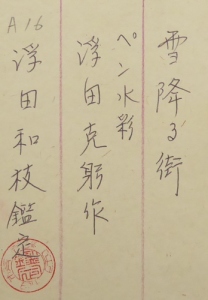 雪降る街
ペン水彩
浮田克躬作
A16
浮田和枝鑑定